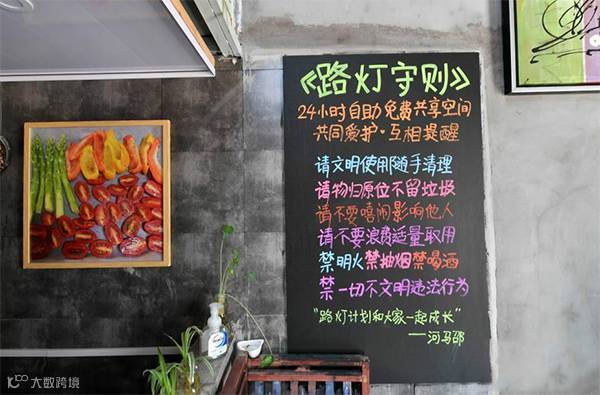 《路灯守则》
24小时自助免费共享空间
共同爱护·互相提醒
请文明使用随手清理
请物归原位不留垃圾
请不要嘻闹影响他人
请不要浪费适量取用
禁明火禁抽烟禁喝酒
禁一切不文明违法行为
“路灯计划和大家一起成长”
——河马邵
大数跨境